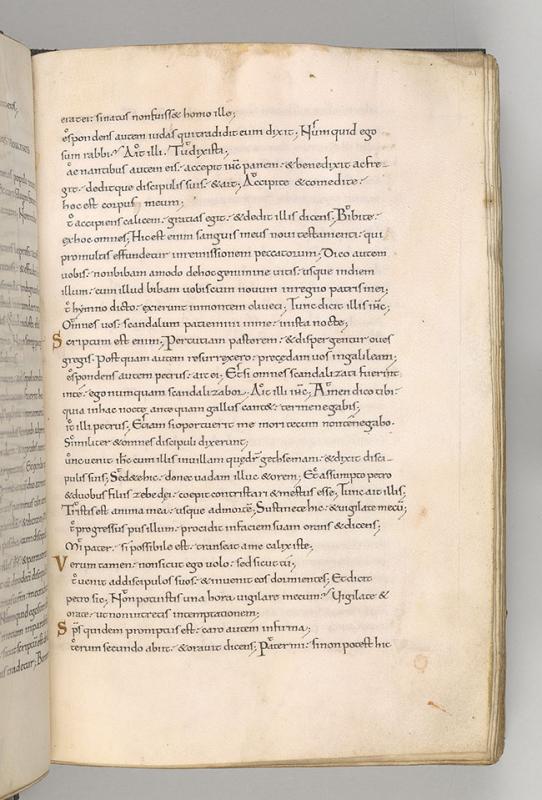 erat ei si natus non fuisset homo ille;
espondens autem iudas qui tradidit eum dixit; Numquid ego
sum rabbi; Ait illi; Tu dixisti;
aenantibus autem eis accepit ihc panem & benedixit ac fre-
git. deditque discipulis suis & ait; Accipite & comedite.
hoc est corpus meum;
t accipiens calicem. gratias egit. & dedit illis dicens; Bibite
ex hoc omnes; Hic est enim sanguis meus noui testamenti. qui
pro multis effundetur in remissionem peccatorum; Dico autem
uobis. non bibam amodo de hoc genimine uitis. usque in diem
illum. cum illud bibam uobiscum nouum in regno patris mei;
t hymno dicto. exierunt in montem oliueti; Tunc dicit illis ihc;
Omnes uos. scandalum patiemini in me. in ista nocte;
Scriptum est enim; Percutiam pastorem. & dispergentur oues
gregis. Postquam autem resurrexero. precedam uos in galileam;
espondens autem petrus. ait ei; Etsi omnes scandalizati fuerint
in te. ego numquam scandalizabor; Ait illi ihc; Amen dico tibi
quia in hac nocte ante quam gallus cantet. ter me negabis;
it illi petrus; Etiam si oportuerit me mori tecum non te negabo.
Similiter & omnes discipuli dixerunt;
unc uenit ihc cum illis in uillam que dr gethsemani. & dixit disci-
pulis suis; Sedete hic. donec uadam illuc & orem; Et assumpto petro
& duobus filiis zebedei. coepit contristari & mestus esse; Tunc ait illis;
Tristis est anima mea. usque ad mortem; Sustinete hic. & uigilate mecum;
t progressus pusillum. procidit in faciem suam orans & dicens;
Mi pater. si possibile est. transeat a me calix iste;
Verum tamen. non sicut ego uolo. sed sicut tu;
t uenit ad discipulos suos. & inuenit eos dormientes; Et dicit
petro sic; Non potuistis una hora uigilare mecum; Vigilate &
orate. ut non intretis in temptationem;
Sps quidem promptus est. caro autem infirma;
terum secundo abiit. & orauit dicens; Pater mi. si non potest hic